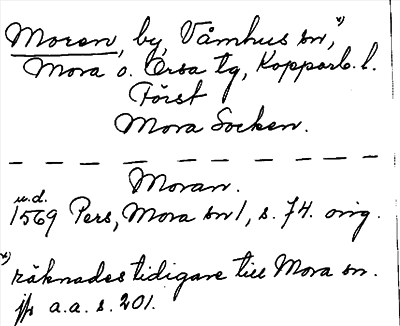 Moren, by, Våmhus sn,x)
Mora o. Orsa tg, Kopparb. l.
Först
Mora Socken.
Moran.
u.d.
1569 Pers, Mora sn 1, s. 74. orig.
x) räknades tidigare till Mora sn.
jfr a.a. s. 201.